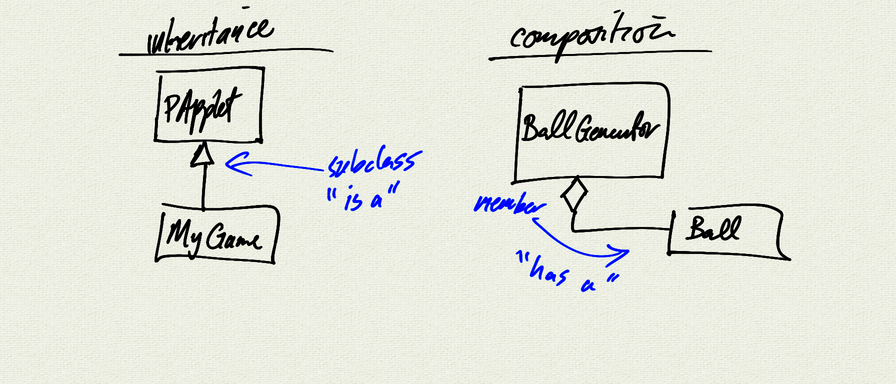 inheritance
PApplet
subclass
"is a"
MyGame
composition
BallGenerator
member
Ball
"has a"